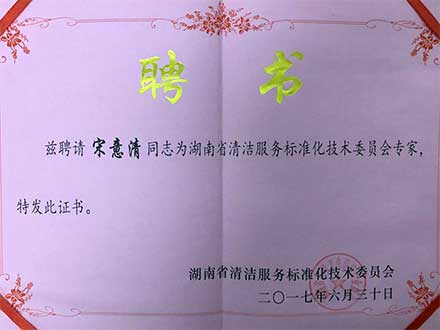 聘 书
兹聘请 宋意清 同志为湖南省清洁服务标准化技术委员会专家，
特发此证书。
湖南省清洁服务标准化技术委员会
二〇一七年六月三十日